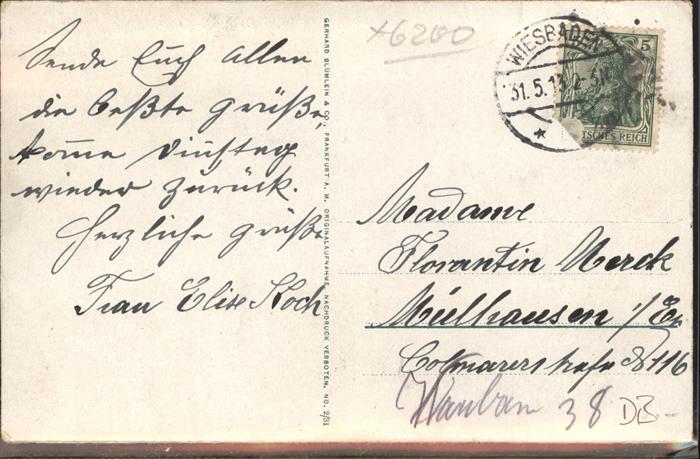 Sende Euch Allen
die beßte Grüße,
komme Dinstag
wieder zurück.
Herzliche Grüße
Frau Elise Koch
GERHARD BLÜMLEIN & CO., FRANKFURT A. M. ORIGINALAUFNAHME NACHDRUCK VERBOTEN. NO. 2/31
+6200
WIESBADEN
31.5.13. 2-
5
DEUTSCHES REICH
Madame
Florantin Merck
Mülhausen i/Es
Colmarerstraße № 116
38 DB-